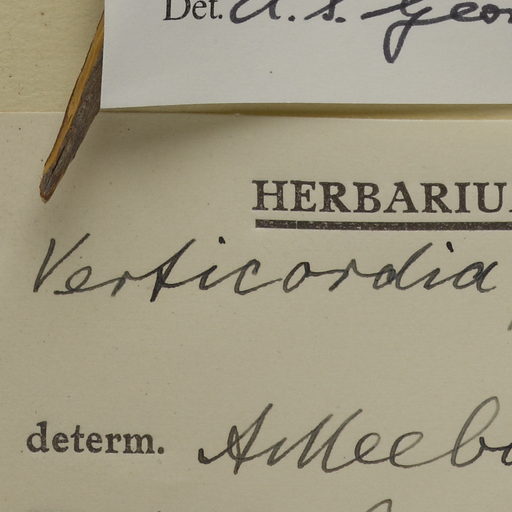 Det. A. S. Geor
HERBARIU
Verticordia
determ. AMeebo